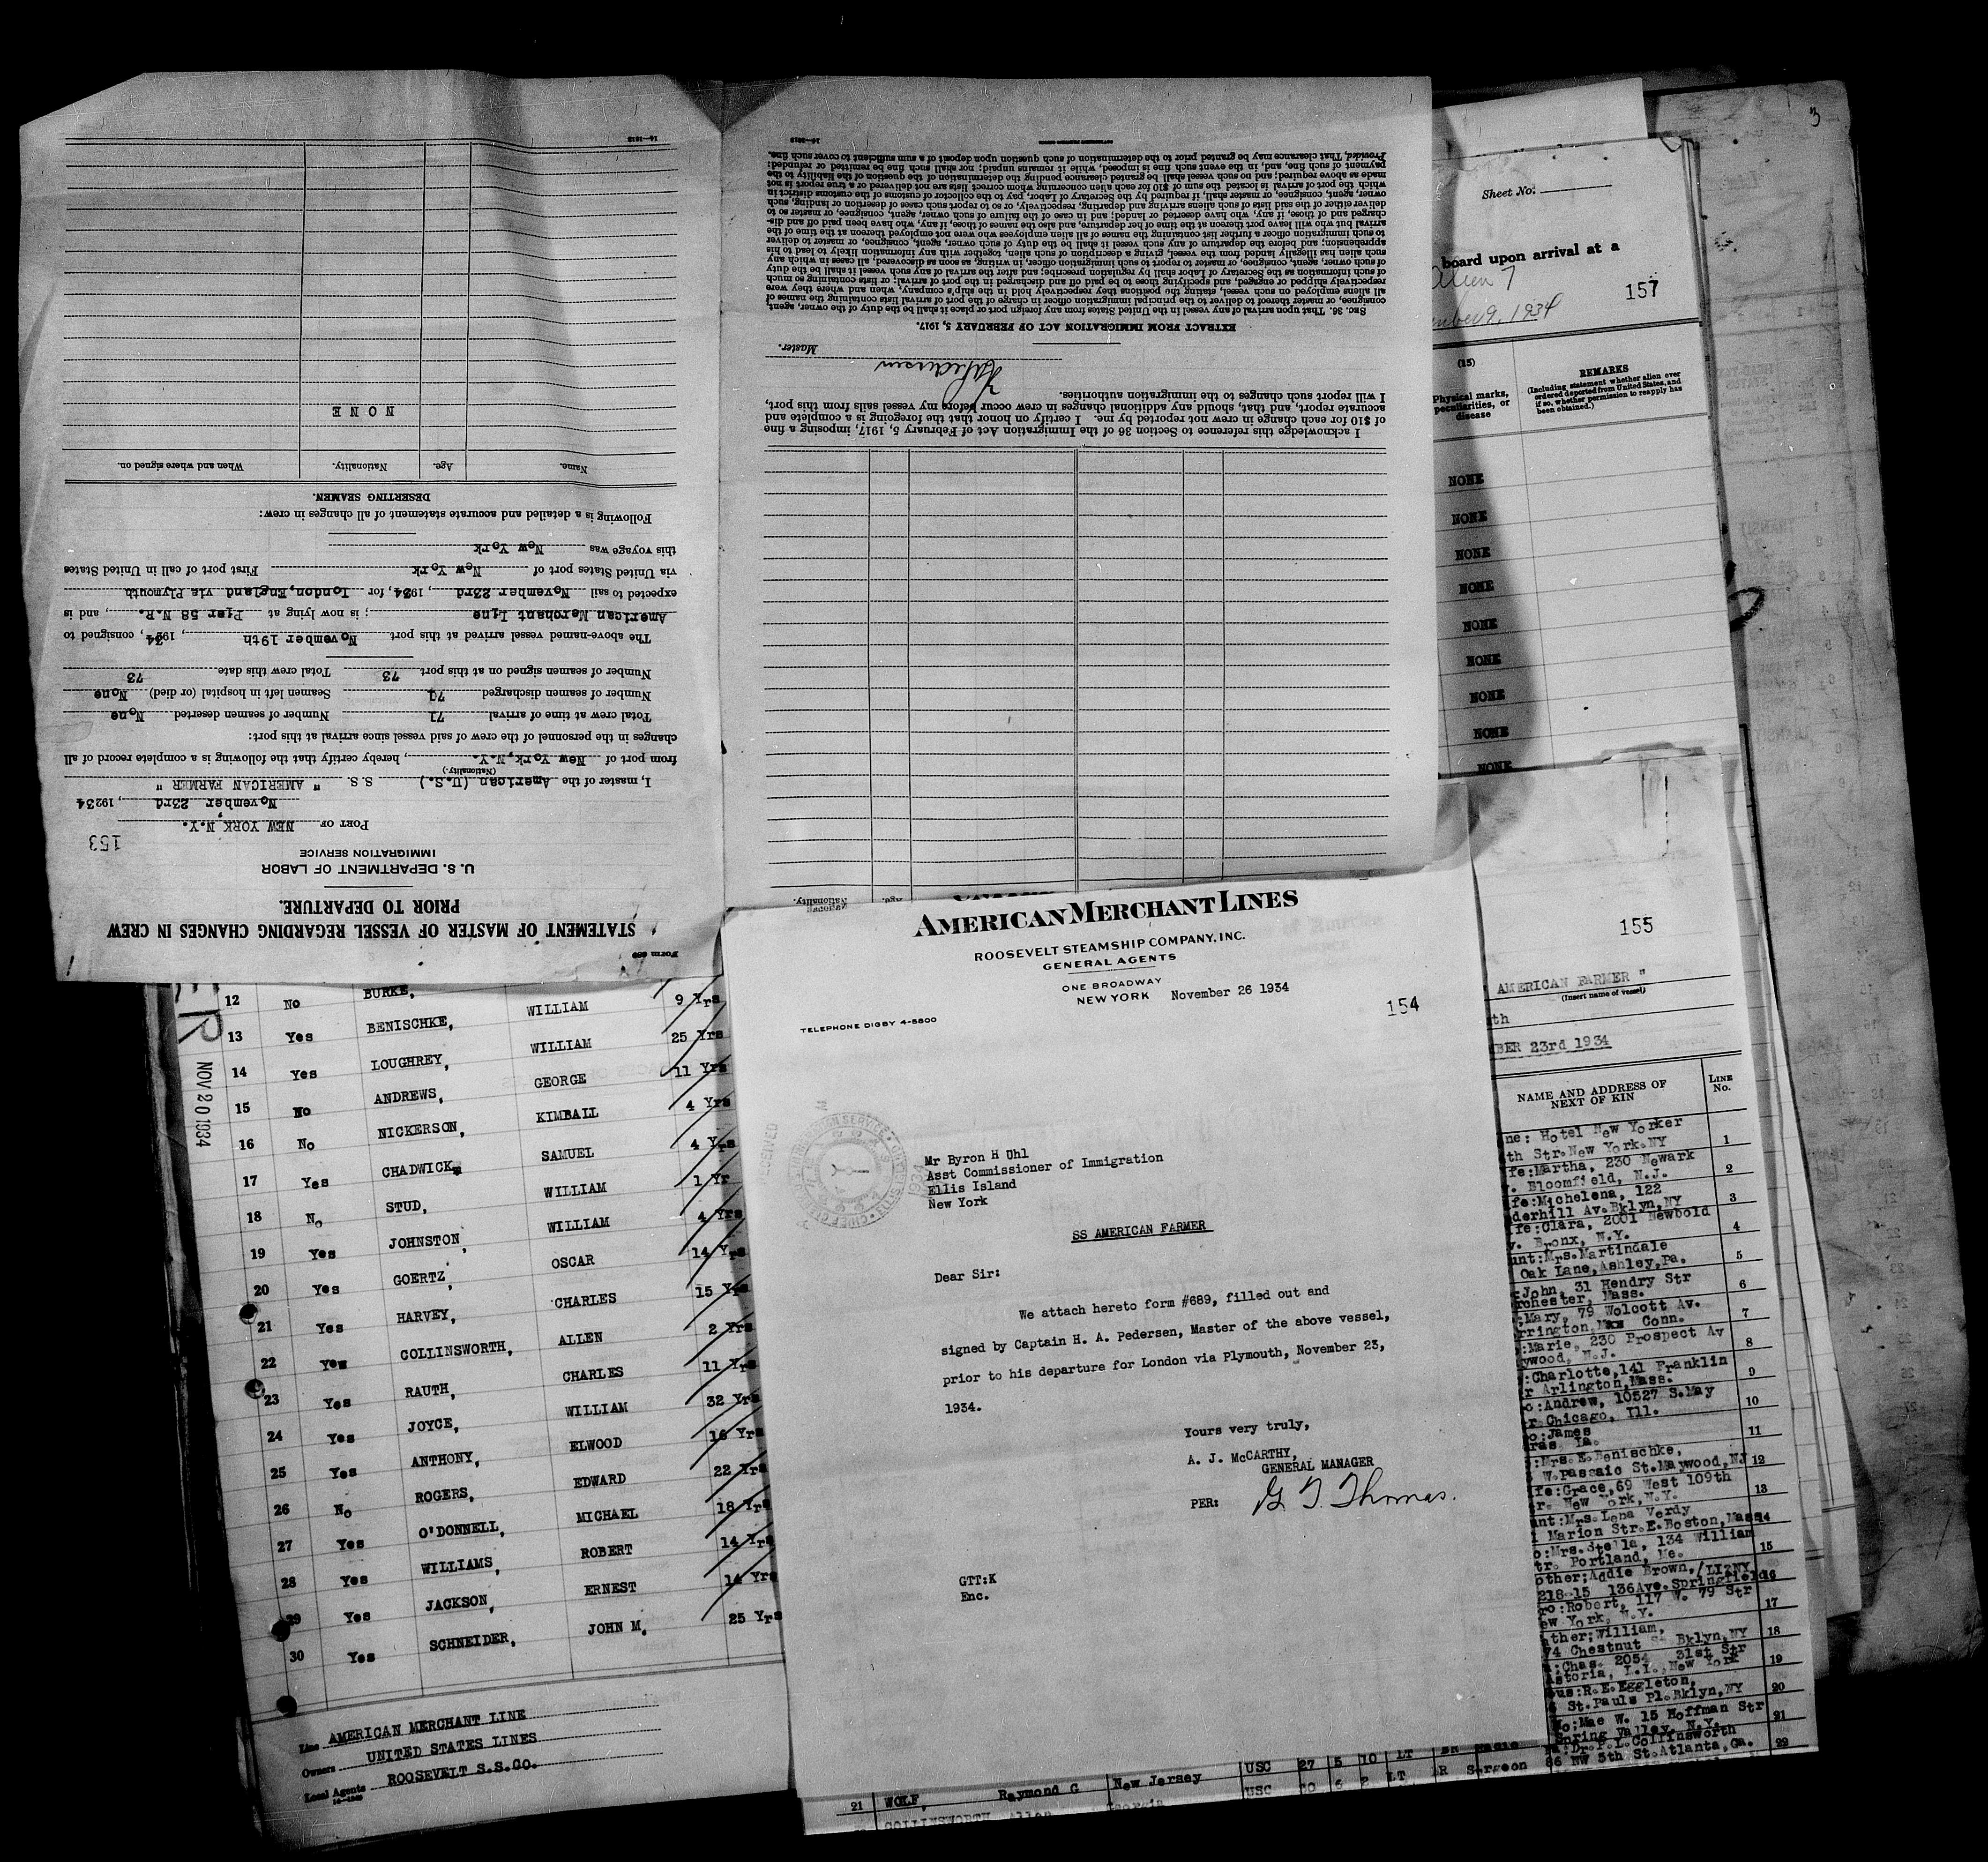 Form 689
STATEMENT OF MASTER OF VESSEL REGARDING CHANGES IN CREW
PRIOR TO DEPARTURE.
U. S. DEPARTMENT OF LABOR
IMMIGRATION SERVICE
153
PORT OF NEW YORK, N.Y.
November 23rd, 19234
I, master of the American (U.S.) S. S. " AMERICAN FARMER "
(Nationality.)
from port of New York, N.Y., hereby certify that the following is a complete record of all
changes in the personnel of the crew of said vessel since arrival at this port:
Total crew at time of arrival 71 Number of seamen deserted None
Number of seamen discharged Seamen left in hospital (or died) None
Number of seamen signed on at this port 73 Total crew this date 73
The above-named vessel arrived at this port November 19th, 1934, consigned to
American Merchant Line; is now lying at Pier 58 N.R., and is
expected to sail November 23rd, 1934, for London, England via Plymouth
via United States port of New York First port of call in United States
this voyage was New York
Following is a detailed and accurate statement of all changes in crew:
DESERTING SEAMEN.
Name. Age. Nationality. When and where signed on.
NONE
16—1913
Age. Nationality.
I acknowledge this reference to Section 36 of the Immigration Act of February 5, 1917, imposing a fine
of $10 for each change in crew not reported by me. I certify on honor that the foregoing is a complete and
accurate report, and that, should any additional changes in crew occur before my vessel sails from this port,
I will report such changes to the immigration authorities.
HAPedersen
Master.
EXTRACT FROM IMMIGRATION ACT OF FEBRUARY 5, 1917.
SEC. 36. That upon arrival of any vessel in the United States from any foreign port or place it shall be the duty of the owner, agent,
consignee, or master thereof to deliver to the principal immigration officer in charge of the port of arrival lists containing the names of
all aliens employed on such vessel, stating the positions they respectively hold in the ship's company, when and where they were
respectively shipped or engaged, and specifying those to be paid off and discharged in the port of arrival; or lists containing so much
of such information as the Secretary of Labor shall by regulation prescribe; and after the arrival of any such vessel it shall be the duty
of such owner, agent, consignee, or master to report to such immigration officer, in writing, as soon as discovered, all cases in which any
such alien has illegally landed from the vessel, giving a description of such alien, together with any information likely to lead to his
apprehension; and before the departure of any such vessel it shall be the duty of such owner, agent, consignee, or master to deliver
to such immigration officer a further list containing the names of all alien employees who were not employed thereon at the time of the
arrival but who will leave port thereon at the time of her departure, and also the names of those, if any, who have been paid off and dis-
charged and of those, if any, who have deserted or landed; and in case of the failure of such owner, agent, consignee, or master so to
deliver either of the said lists of such aliens arriving and departing, respectively, or so to report such cases of desertion or landing, such
owner, agent, consignee, or master shall, if required by the Secretary of Labor, pay to the collector of customs of the customs district in
which the port of arrival is located the sum of $10 for each alien concerning whom correct lists are not delivered or a true report is not
made as above required; and no such vessel shall be granted clearance pending the determination of the question of the liability to the
payment of such fine, and, in the event such fine is imposed, while it remains unpaid; nor shall such fine be remitted or refunded:
Provided, That clearance may be granted prior to the determination of such question upon deposit of a sum sufficient to cover such fine.
16—1913
3
Sheet No.
board upon arrival at a
157
mber 9, 1934
(15)
Physical marks, peculiarities, or disease
REMARKS
(Including statement whether alien ever ordered deported from United States, and if so, whether permission to reapply has been obtained.)
NONE
NONE
NONE
NONE
NONE
NONE
NONE
NONE
NONE
AMERICAN MERCHANT LINES
ROOSEVELT STEAMSHIP COMPANY, INC.
GENERAL AGENTS
ONE BROADWAY
NEW YORK November 26 1934
154
TELEPHONE DIGBY 4-5800
Mr Byron H Uhl
Asst Commissioner of Immigration
Ellis Island
New York
SS AMERICAN FARMER
Dear Sir:
We attach hereto form #689, filled out and
signed by Captain H. A. Pedersen, Master of the above vessel,
prior to his departure for London via Plymouth, November 23,
1934.
Yours very truly,
A. J. McCARTHY,
GENERAL MANAGER
PER: G. T. Thomas.
GTT:K
Enc.
NOV 20 1934
12 No BURKE, WILLIAM 9 Yrs
13 Yes BENISCHKE, WILLIAM 25 Yrs
14 Yes LOUGHREY, GEORGE 11 Yrs
15 No ANDREWS, KIMBALL 4 Yrs
16 No NICKERSON, SAMUEL 4 Yrs
17 Yes CHADWICK, WILLIAM 1 Yr
18 No STUD, WILLIAM 4 Yrs
19 Yes JOHNSTON, OSCAR 14 Yrs
20 Yes GOERTZ, CHARLES 15 Yrs
21 Yes HARVEY, ALLEN 2 Yrs
22 Yes COLLINSWORTH, CHARLES 11 Yrs
23 Yes RAUTH, WILLIAM 32 Yrs
24 Yes JOYCE, ELWOOD 16 Yrs
25 Yes ANTHONY, EDWARD 22 Yrs
26 No ROGERS, MICHAEL 18 Yrs
27 Yes O'DONNELL, ROBERT 14 Yrs
28 Yes WILLIAMS, ERNEST 14 Yrs
29 Yes JACKSON, JOHN M. 25 Yrs
30 Yes SCHNEIDER,
Line AMERICAN MERCHANT LINE
Owners UNITED STATES LINES
Local Agents ROOSEVELT S.S.CO.
155
AMERICAN FARMER "
(Insert name of vessel)
th
BER 23rd 1934
NAME AND ADDRESS OF NEXT OF KIN
LINE No.
ne: Hotel New Yorker
th Str.New York.NY 1
fe:Martha, 230 Newark
. Bloomfield, N.J. 2
fe:Michelena, 122
derhill Av.Bklyn,NY 3
fe:Clara, 2001 Newbold
v. Bronx, N.Y. 4
unt:Mrs.Martindale
Oak Lane,Ashley,Pa. 5
:John, 31 Hendry Str
rchester, Mass. 6
:Mary, 79 Wolcott Av.
rrington, Conn. 7
:Marie, 230 Prospect Av
ywood, N.J. 8
:Charlotte,141 Franklin
r Arlington,Mass. 9
o:Andrew, 10527 S.May
r Chicago, Ill. 10
o:James
ras La. 11
:Mrs.E.Benischke,
W.Passaic St.Maywood,NJ 12
fe:Grace,69 West 109th
r. New York,N.Y. 13
nt:Mrs.Lena Verdy
Marion Str.E.Boston,Mass 14
o:Mrs.Stella, 134 William
tr. Portland, Me. 15
other;Addie Brown,/LIZNY
218-15 136Ave.Springfield 16
ro:Robert, 117 W. 79 Str
ew York, N.Y. 17
ther;William,
74 Chestnut St Bklyn,NY 18
:Chas. 2054 31st Str
storia, L.I.,New York 19
us:R.E.Eggleton,
St.Pauls Pl.Bklyn,NY 20
o:Mae W. 15 Hoffman Str
Spring Valley, N.Y. 21
a:Dr.P.L.Collinsworth
86 NW 5th St.Atlanta,Ga. 22
21 WOLF, Raymond G New Jersey USC 27 5 10 LT BR Radio
COLLINSWORTH Allen Georgia USC 6 2 LT BR Surgeon